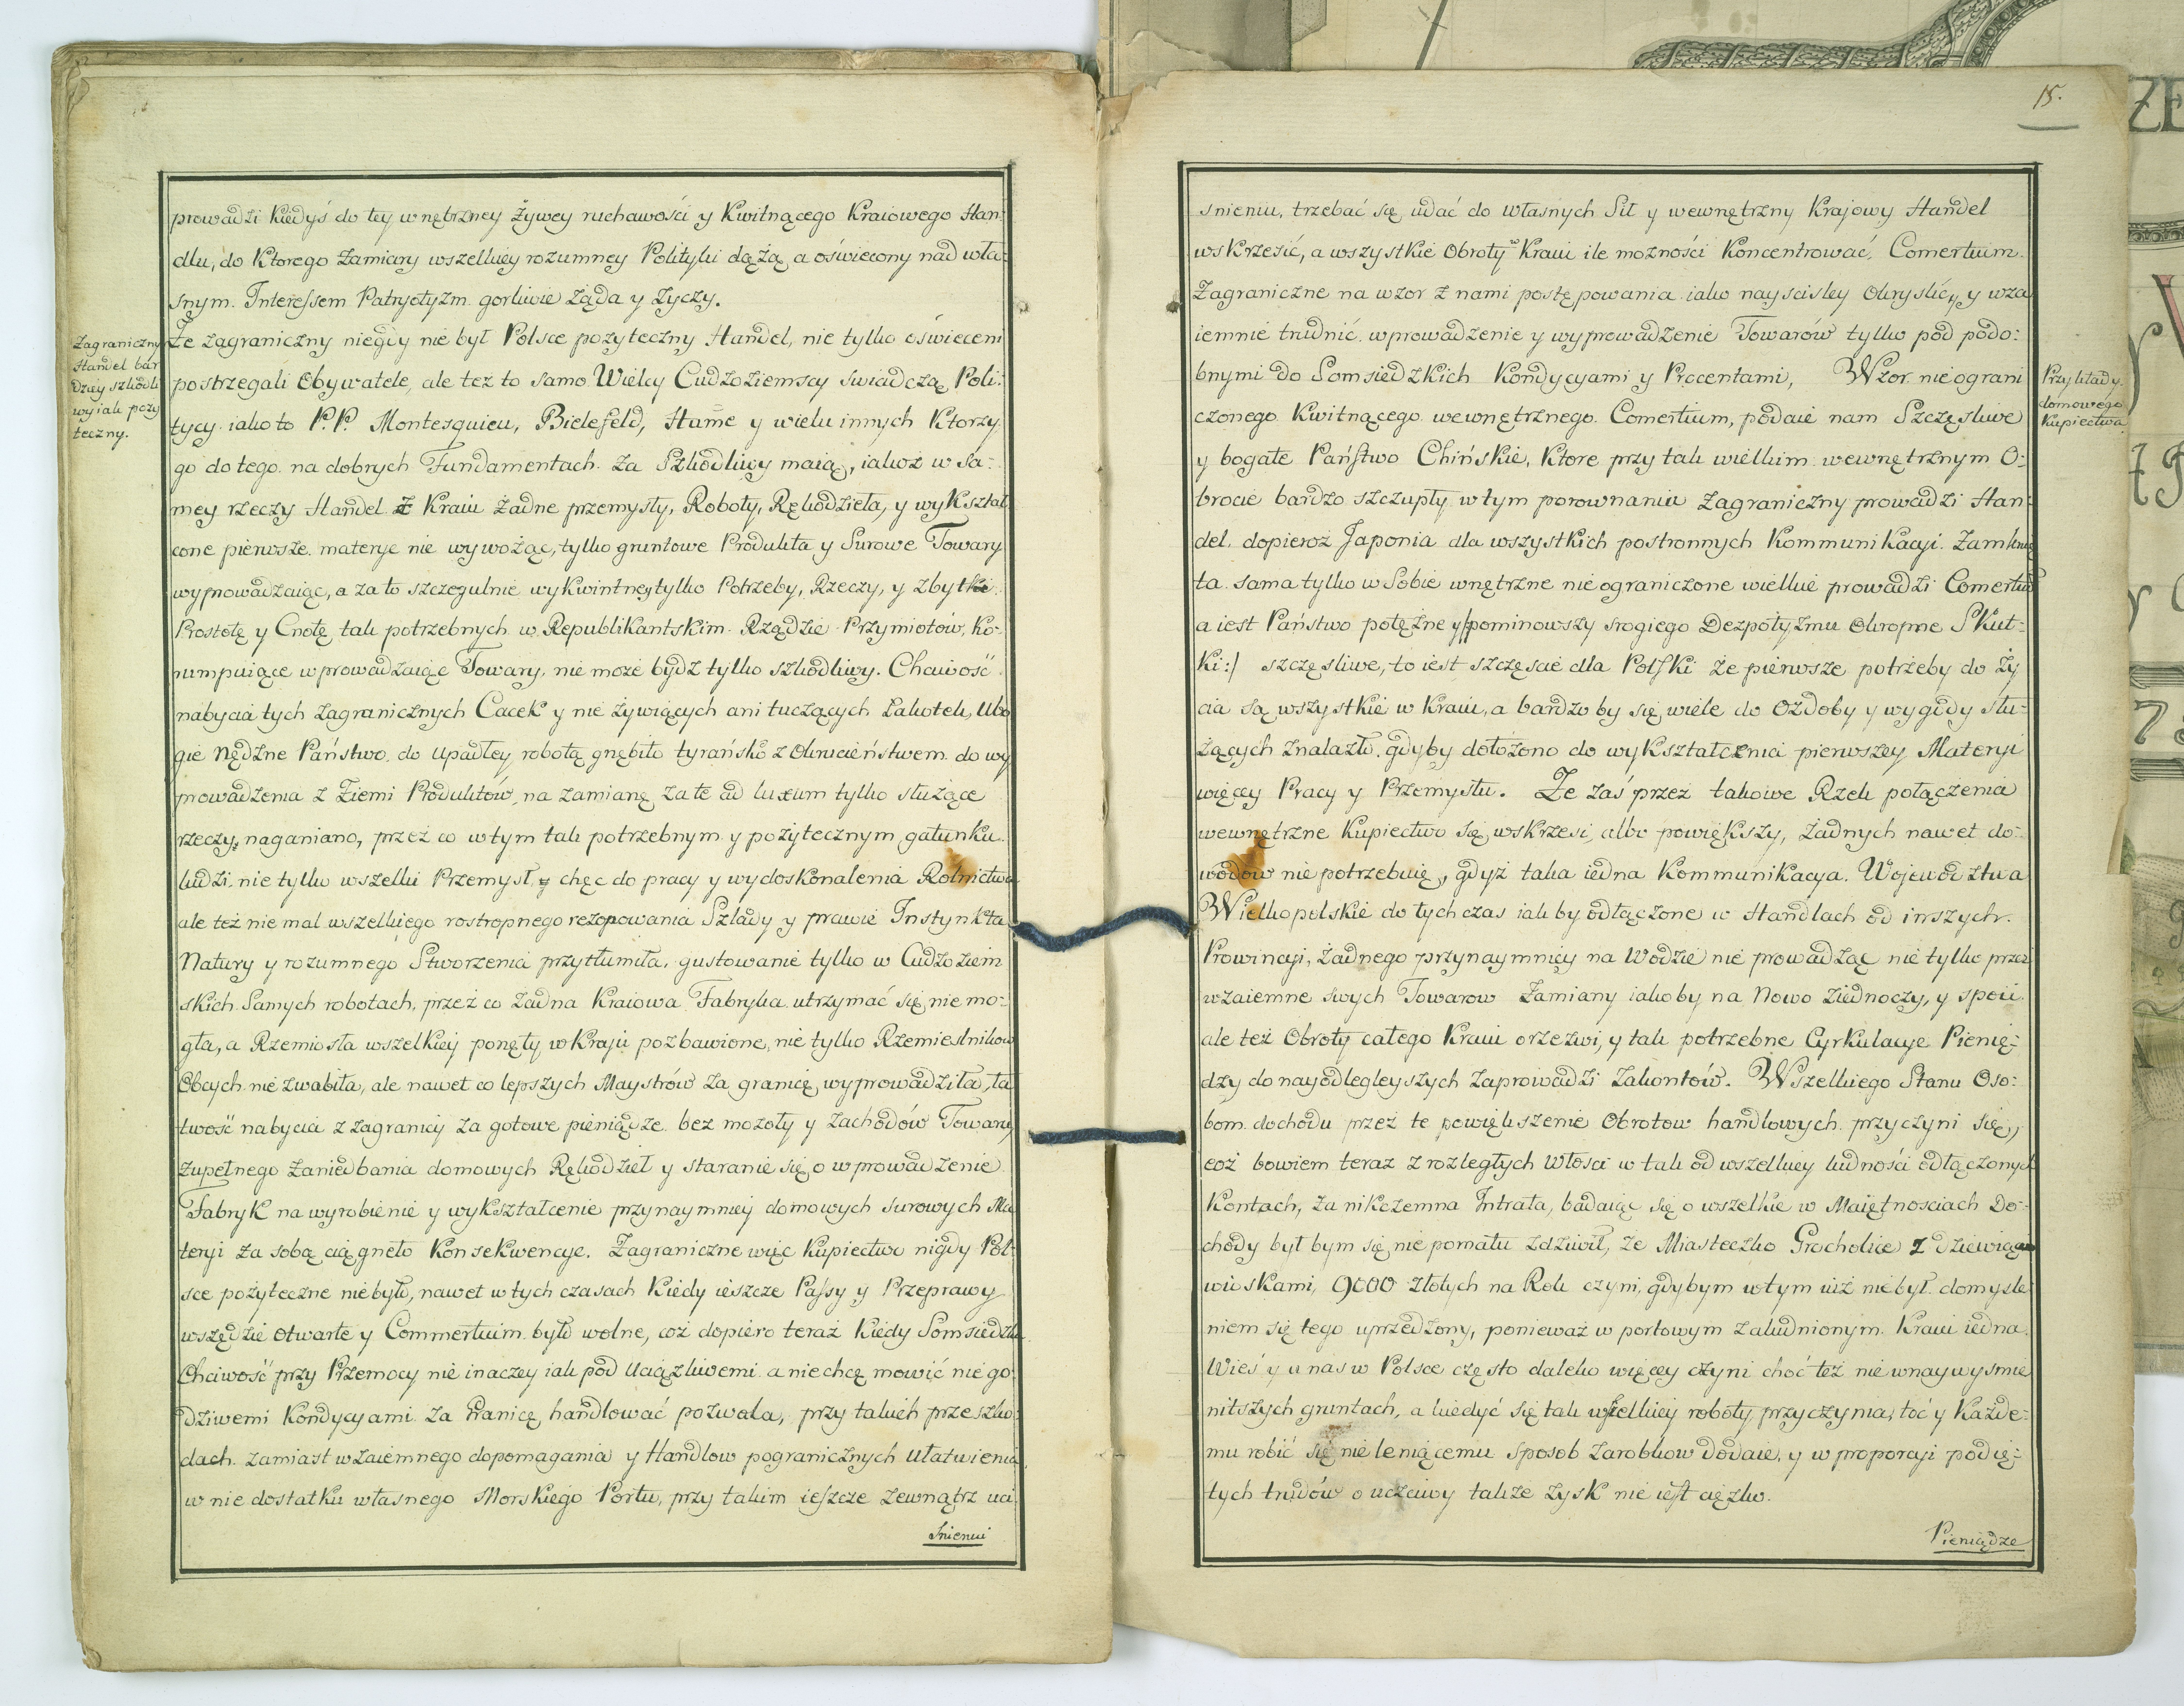 prowadzi kiedyś do tey wnętrzney Żywey ruchawości y Kwitnącego Kraiowego Han:
dlu, do Ktorego Zamiary wszelkiey rozumney Polityki dążą a oświecony nad wła:
snym Interessem Patryotyzm gorliwie żąda y życzy.
Zagraniczny
Handel bar
dziey szkodli
wy iak poży
teczny.
Że zagraniczny niegdy nie był Polsce pożyteczny Handel, nie tylko oświeceni
postrzegali Obywatele, ale też to samo Wielcy Cudzoziemscy świadczą Poli:
tycy iako to P.P. Montesquieu, Bielefeld, Hume y wielu innych Ktorzy
go do tego na dobrych Fundamentach za Szkodliwy maią, iakoż w sa:
mey rzeczy Handel z Kraiu żadne przemysły, Roboty, Rękodzieła, y wykształ
cone pierwsze materye nie wywożąc, tylko gruntowe Produkta y Surowe Towary
wyprowadzaiąc, a za to szczegulnie wykwintney tylko Potrzeby, Rzeczy, y zbytki
Prostotę y Cnotę tak potrzebnych w Republikantskim Rządzie Przymiotów, Ko:
rumpuiące wprowadzaiąc Towary, nie może bydz tylko szkodliwy. Chciwość
nabycia tych zagranicznych Cacek y nie żywiących ani tuczących Łakotek, Ubo
gie Nędzne Państwo do upadłey robotą gnębiło tyrańsko z Okrucieństwem do wy
prowadzenia z Ziemi Produktów, na zamianę za te ad luxum tylko służące
rzeczy, naganiano, przez co w tym tak potrzebnym y pożytecznym gatunku
ludzi, nie tylko wszelki Przemysł, y chęć do pracy y wydoskonalenia Rolnictwa
ale też nie mal wszelkiego rostropnego rezonowania Szlady y prawie Instynkta
Natury y rozumnego Stworzenia przytłumiła, gustowanie tylko w Cudzoziem
skich Samych robotach, przez co żadna Kraiowa Fabryka utrzymać się nie mo:
gła, a Rzemiosła wszelkiey ponęty w Kraju pozbawione, nie tylko Rzemieslnikow
Obcych nie zwabiła, ale nawet co lepszych Maystrów za granicę wyprowadziła, ła
twość nabycia z zagranicy za gotowe pieniądze bez mozoły y zachodów Towary
zupełnego zaniedbania domowych Rękodzieł y staranie się o wprowadzenie
Fabryk na wyrobienie y wykształcenie przynaymniey domowych surowych Ma
teryi za sobą ciągneło Konsekwencye. Zagraniczne więc Kupiectwo nigdy Pol:
sce pożyteczne nie było, nawet w tych czasach Kiedy ieszcze Passy y Przeprawy
wszędzie Otwarte y Commertium było wolne, coż dopiero teraz Kiedy Somsiedzka
Chciwość przy Przemocy nie inaczey iak pod uciążliwemi a nie chcę mowić nie go:
dziwemi Kondycyami za Granicę handlować pozwala, przy takich przeszko:
dach zamiast wzaiemnego dopomagania y Handlow pogranicznych ułatwienia,
w nie dostatku własnego Morskiego Portu, przy takim ieszcze zewnątrz uci
śnieniu
15.
śnieniu, trzebać się udać do własnych Sił y wewnętrzny Krajowy Handel
wskrzesić, a wszystkie Obroty w Kraiu ile możności Koncentrować, Comertium
Zagraniczne na wzor z nami postępowania iako nayscisley Okryslić, y wza
iemnie trudnić wprowadzenie y wyprowadzenie Towarów tylko pod podo:
bnymi do Somsiedzkich Kondycyami y Procentami, Wzor nie ograni
Przykłady
domowego
Kupiectwa
czonego Kwitnącego wewnętrznego Comertium, podaie nam Szczęsliwe
y bogate Państwo Chińskie, Ktore przy tak wielkim wewnętrznym O:
brocie bardzo szczupły w tym porownaniu zagraniczny prowadzi Han:
del, dopieroż Japonia dla wszystkich postronnych Kommunikacyi Zamknię
ta sama tylko w Sobie wnętrzne nie ograniczone wielkie prowadzi Comertium
a iest Państwo potężne y /pominowszy srogiego Despotyzmu Okropne Skut:
ki:/ szczęsliwe, to iest szczęscie dla Polski że pierwsze potrzeby do ży
cia są wszystkie w Kraiu, a bardzo by się wiele do Ozdoby y wygody słu:
żących znalazło, gdyby dołożono do wykształcenia pierwszey Materyi
więcey Pracy y Przemysłu. Że zaś przez takowe Rzek połączenia
wewnętrzne Kupiectwo się wskrzesi, albo powiększy, żadnych nawet do:
wodów nie potrzebuię, gdyż taka iedna Kommunikacya. Wojewodztwa
Wielkopolskie do tych czas iak by odłączone w Handlach od inszych
Prowincyi, żadnego przynaymniey na Wodzie nie prowadząc nie tylko przez
wzaiemne swych Towarow Zamiany iakoby na Nowo ziednoczy, y spoii
ale też Obroty całego Kraiu orzezwi, y tak potrzebne Cyrkulacye Pienię:
dzy do nayodlegleyszych zaprowadzi Zakontów. Wszelkiego Stanu Oso:
bom dochodu przez te powiększenie Obrotow handlowych przyczyni się,
coż bowiem teraz z rozległych Włości w tak od wszelkiey ludności odłączonych
Kontach, za nikczemna Intrata, badaiąc się o wszelkie w Maiętnosciach Do:
chody był bym się nie pomału zdziwił, że Miasteczko Grocholice z dziewięcią
wioskami, 9000 złotych na Rok czyni, gdybym w tym iuż nie był domysle
niem się tego uprzedzony, ponieważ w portowym zaludnionym Kraiu iedna
Wieś y u nas w Polsce często daleko więcey czyni choć też nie w naywysmie
nitszych gruntach, a kiedyć się tak wszelkiey roboty przyczynia, toć y Każde:
mu robić się nie leniącemu sposob zarobkow dodaie, y w proporcyi podię:
tych trudów o uczciwy także zysk nie iest ciężko.
Pieniądze